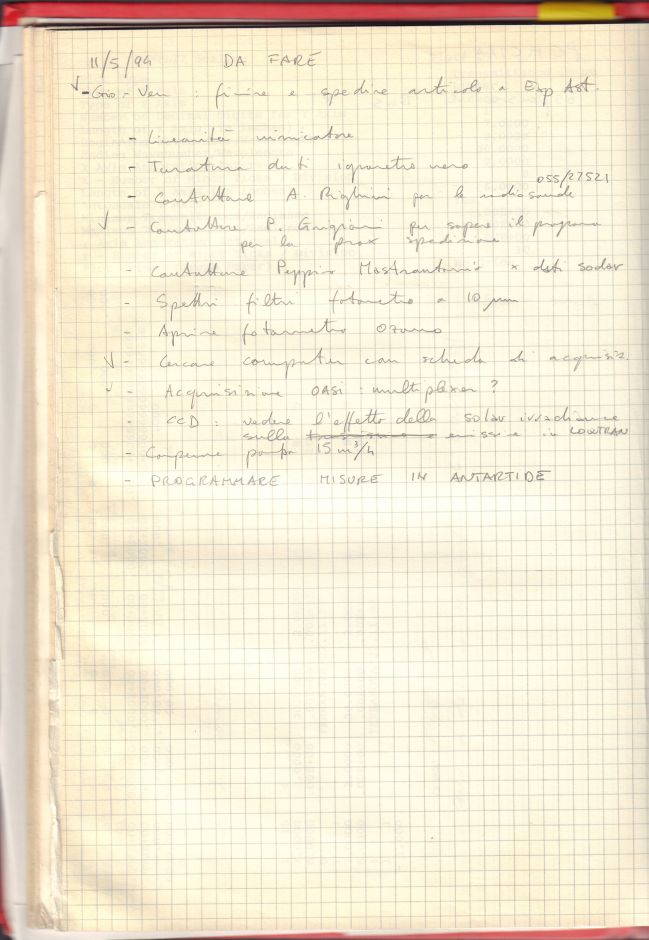 11/5/94 DA FARE
√ - Gio-Ven : finire e spedire articolo a Exp Ast.
- Linearità
- Taratura dati igrometro nero
055/27521
- Contattare A. Righini per le radiosonde
√ - Contattare P. Grigioni per sapere il programma
per la prox spedizione
- Contattare Peppino Mastrantonio x dati sodar
- Spettri filtri fotometro a 10 μm
- Aprire fotometro Ozono
√ - Cercare computer con scheda di acquisiz.
√ - Acquisizione OASI : multiplexer ?
- CCD : vedere l'effetto della solar irradiance
sulla emissione in LOWTRAN
- Comperare pompa 15 m³/h
- PROGRAMMARE MISURE IN ANTARTIDE